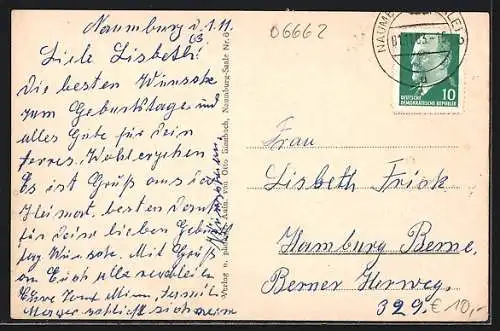 Naumburg d. 1.11.
63
Liebe Lisbeth!
Die besten Wünsche
zum Geburtstage und
alles Gute für Dein
ferres Wohlergehen
Es ist Gruß aus der
Heimat. besten Dank
für Deine lieben Gebur
tag Wünsche. Mit Gruß
an Euch alle verbleiben
Eure Minna,
schließt sich
Verlag u. Aufn. von Otto Naumburg-Saale Nr.
06662
NAUMB
01.11.63
DEUTSCHE
DEMOKRATISCHE REPUBLIK
10
Frau
Lisbeth Frick
Hamburg Berne,
Berner Heerweg.
329.
€ 10,-